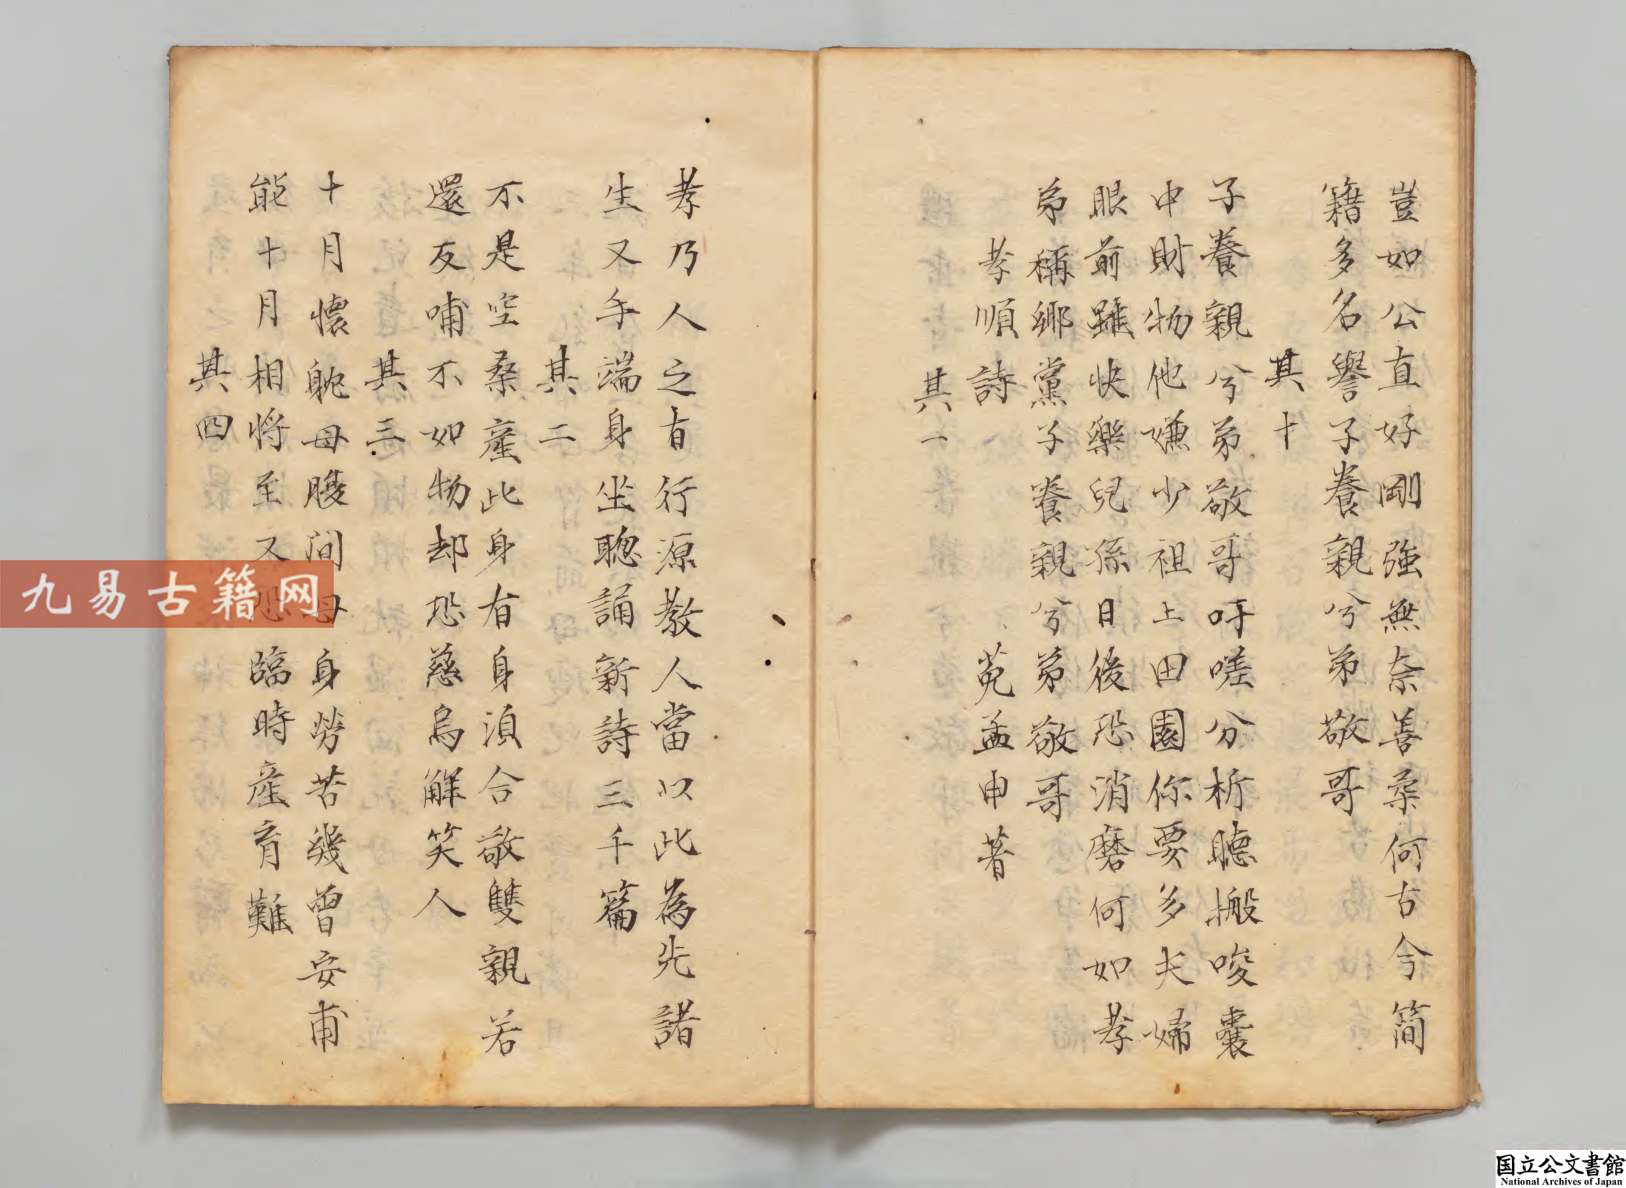 豈如公直好剛強無奈善柔何古今簡
籍多名譽子養親兮弟敬哥
其十
子養親兮弟敬哥吁嗟分析聽搬唆囊
中財物他嫌少祖上田園你要多夫婦
眼前雖快樂兒孫日後恐消磨何如孝
弟稱鄉黨子養親兮弟敬哥
孝順詩 孟申著
其一
孝乃人之百行源教人當以此為先諸
生叉手端身坐聰誦新詩三千篇
其二
不是空桑產此身有身須合敬雙親若
還反哺不如物却恐慈烏解笑人
其三
十月懷躭母腹間母身勞苦幾曾安甫
能十月相將至又恐臨時產育難
其四
九易古籍网
国立公文書館
National Archives of Japan